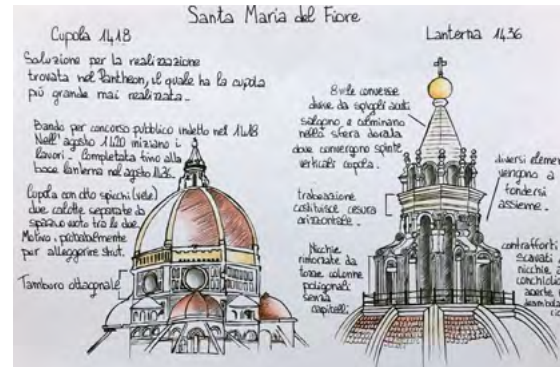 Santa Maria del Fiore
Cupola 1418
Soluzione per la realizzazione
trovata nel Pantheon, il quale ha la cupola
più grande mai realizzata.
Bando per concorso pubblico indetto nel 1418
Nell'agosto 1420 iniziano i
lavori. Completata fino alla
base lanterna nel agosto 1436.
Cupola con otto spicchi (vele)
due calotte separate da
spazio vuoto tra le due
Motivo: probabilmente
per alleggerire strut.
Tamburo ottagonale
Lanterna 1436
8 vele convesse
divise da spigoli acuti
salgono e culminano
nella sfera dorata
dove convergono spinte
verticali cupola.
trabeazione
costituisce cesura
orizzontale.
Nicchie
rinforzate da
colonne
poligonali
senza
capitelli
diversi
vengono a
fondersi
assieme.
contrafforti
scavati
nicchie
aperte